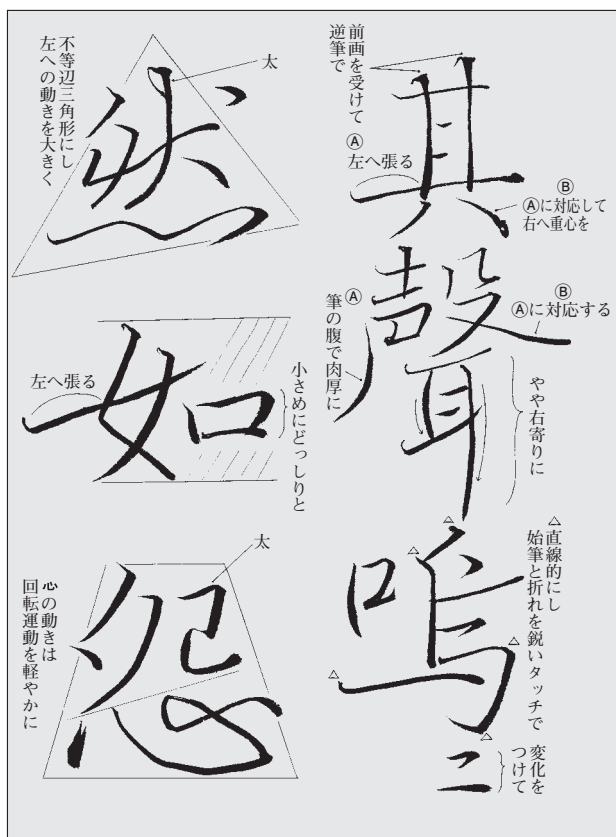 其
前画を受けて
逆筆で
Ⓐ
左へ張る
Ⓑ
Ⓐに対応して
右へ重心を
聲
Ⓐ
筆の腹で肉厚に
Ⓑ
Ⓐに対応する
やや右寄りに
嗚
△直線的にし
始筆と折れを鋭いタッチで
二
変化を
つけて
然
太
不等辺三角形にし
左への動きを大きく
如
左へ張る
小さめにどっしりと
怨
太
心の動きは
回転運動を軽やかに